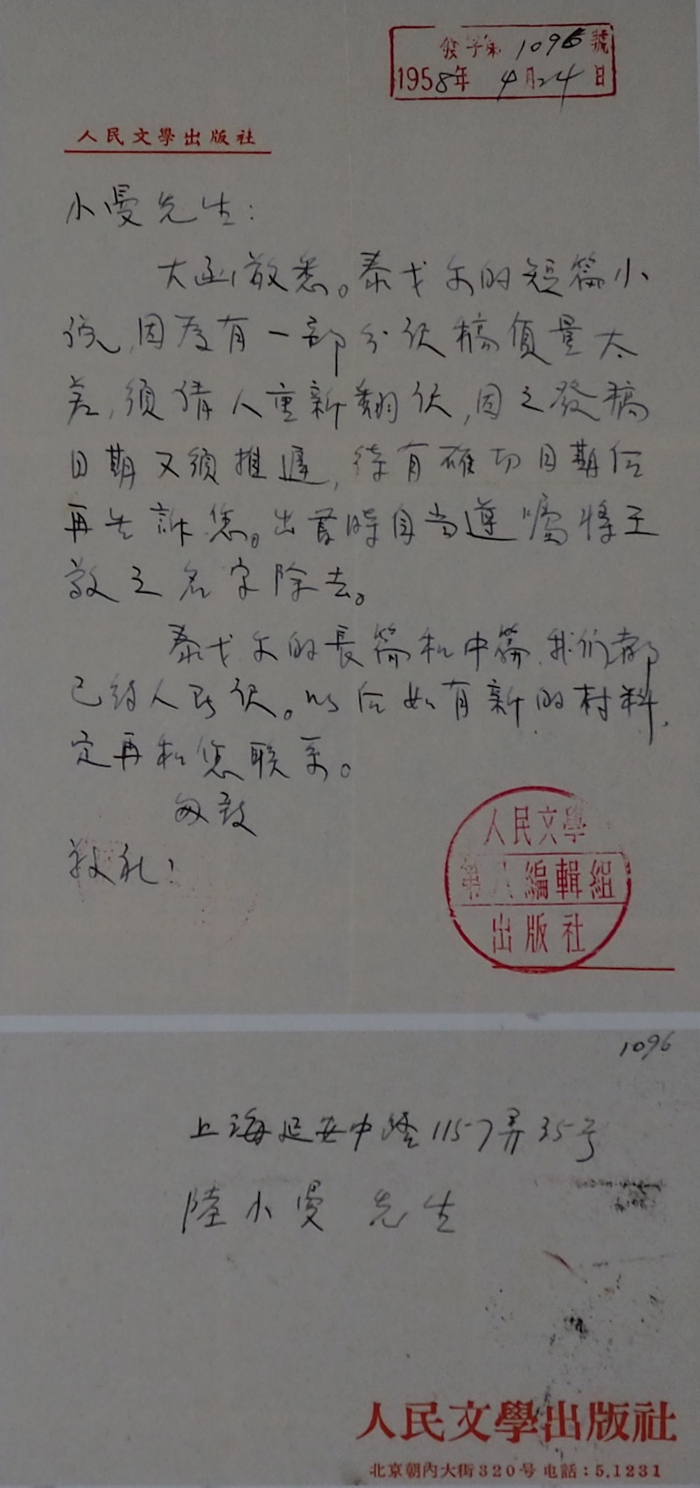 發字第1096號
1958年4月24日
人民文學出版社
小曼先生：
大函敬悉。泰戈尔的短篇小
说，因为有一部分译稿质量太
差，须倩人重新翻译，因之發稿
日期又须推遲，待有確切日期后
再告訴您。出書時自当遵嘱将王
敬之名字除去。
泰戈尔的長篇和中篇，我们都
已约人在译。以后如有新的材料，
定再和您联系。
匆致
敬礼！
人民文學
第八編輯組
出版社
1096
上海延安中路1157弄35号
陸小曼 先生
人民文學出版社
北京朝內大街320号 电話：5.1231